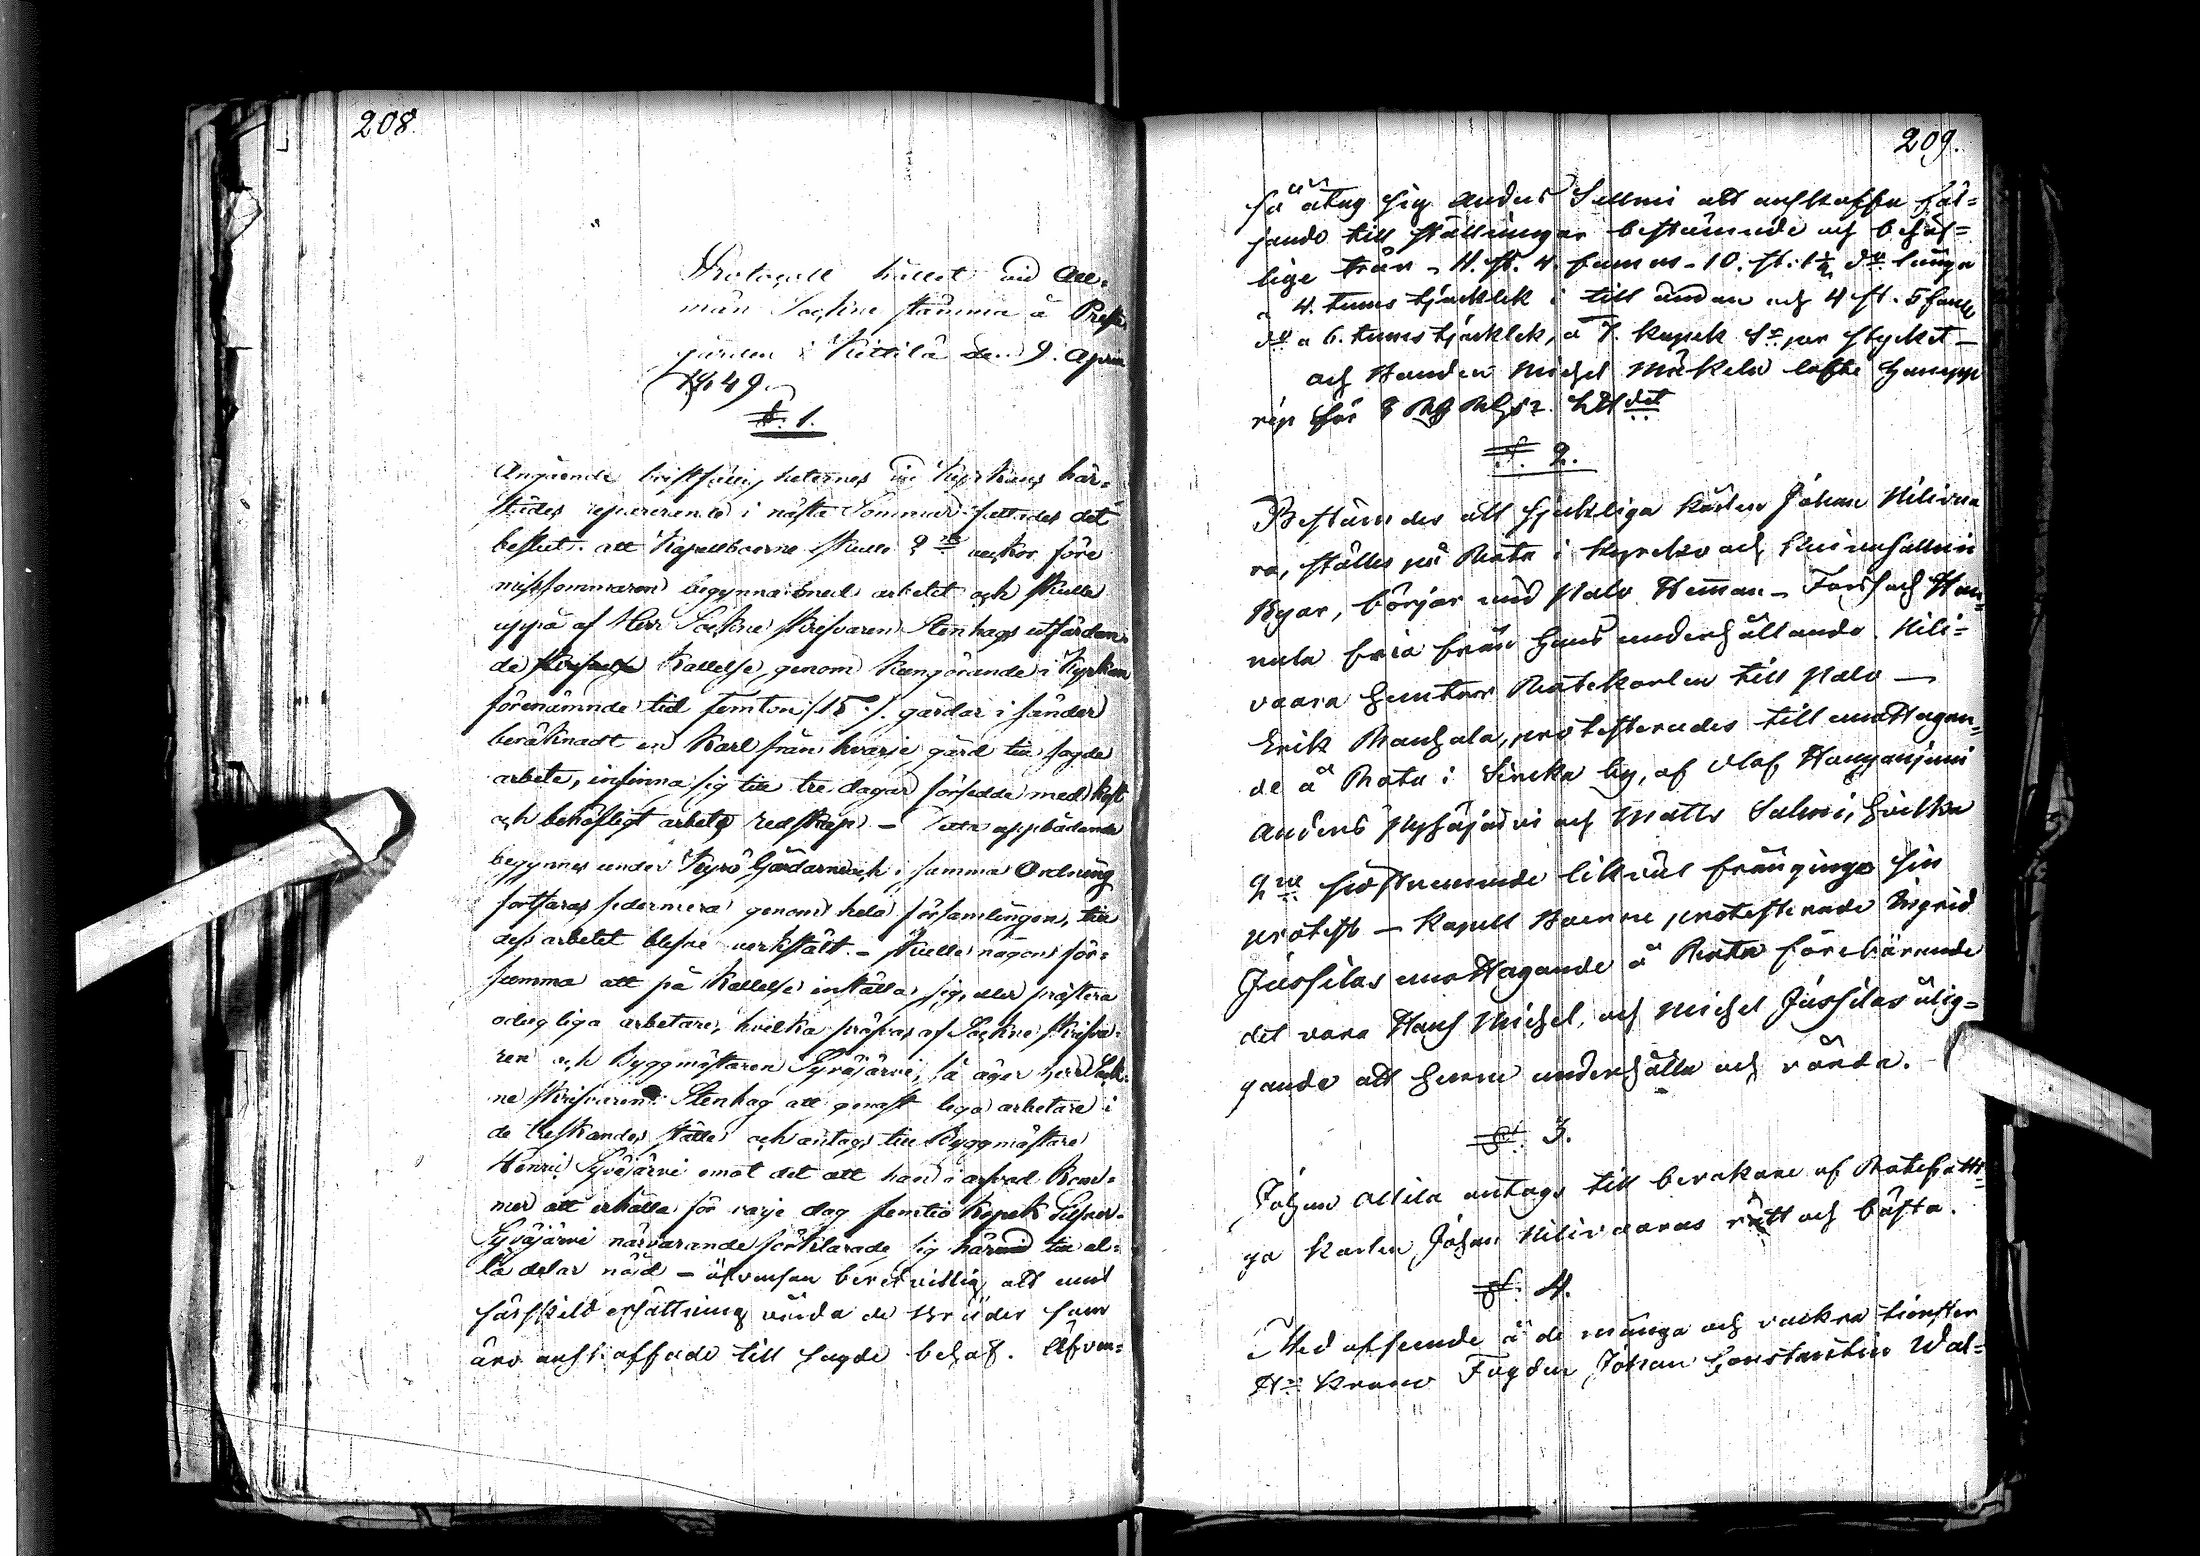 208.
Protocoll hållet vid All-
män Sockne stämma å Prest
gården i Kittilä den 9. April
1849.
§. 1.
Angående bristfälligheternes vid Kyrkans här-
städes reparerende i nästa Sommar fattades det
beslut: att Kapellboerne skulle 2ne veckor före
midsommaren begynna med arbetet och skulle
uppå af Herr Sockne Skrifvaren Stenhags utfärdan-
de Kallelse, genom Kungörande i Kyrkan
förenämnde tid femton /:15:/. gårdar i sänder
beräknadt en Karl från hvarje gård till sagde
arbete, infinna sig till tre dagar försedde med kost
och behöfligt arbets redskap. - Detta uppbådande
begynnes under Kyrö Gårdarne och i samma Ordning
fortfaras sedermera genom hela församlingen, till
dess arbetet blefve verkstält. - Skulle någon för-
summa att på Kallelse inställa sig, eller prästera
odugliga arbetare, hvilka pröfvas af Sockne Skrifva-
ren och Byggmästaren Syväjärvi, så äger herr Sock-
ne Skrifvaren Stenhag att genast lega arbetare i
de treskandes ställe och antags till Byggmästare
Henric Syväjärvi emot det att han i arfvod Kom-
mer att erhålla för varje dag femtio Kopek Silfver.
Syväjärvi närvarande förklarade sig härmed till al-
la delar nöjd - äfvensom beredvillig att emot
särskild ersättning vårda de Bräder som
äro anskaffade till sagde behof. Äfven-
209.
så åtog sig Anders Selleri att anskaffa föl-
jande till ställningar bestämde och behöf-
lige trän - 11. st. 4. famns - 10. st. 1½ do långa
à 4. tums tjocklek i till ändan och 4 st. 5 famns
do à 6. tums tjocklek, à 7. kopek Sr per stycket -
och Bonden Michel Mäkelä lofte hampp
rep för
§. 2.
Bestämdes att sjukliga Karlen Johan Niliva
ra, ställes på Rota i Kyrckö och
Byar, börjar med Palo Heman - Fors och Han
nula fria från hans underhållande. Nili-
vaara hemtar Rotekarlen till Palo -
Erik Rauhala, protesterades till emottagan-
de å Rota i Sircka by, af Olof Hangasjärvi
Anders Pyhäjärvi och Matts Salmi, hvilka
2ne sistnemnde likväl frångingo sin
protest - Kapell Boerne protesterade Brigid
Jussilas emottagande å Rota förebärande
det vara Hans Michel, och Michel Jussilas ålig-
gande att henne underhålla och vårda.
§. 3.
Johan Alila antags till bevakare af Rotehatti-
ga Karlen, Johan Nilivaaras rätt och bästa.
§. 4.
Med afseende å de många och vackra tienster
Hr Krono Fogden Johan Constantin Wal-